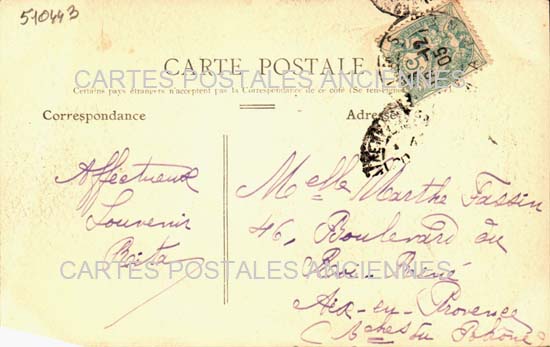 510443
CARTE POSTALE
CARTES POSTALES ANCIENNES
Certains pays étrangers n'acceptent pas la Correspondance de ce côté (Se
Correspondance
Adresse
Affectueux
Souvenir
Melle Marthe Fassin
46, Boulevard du
Roi-René
CARTES POSTALES ANCIENNES
Aix-en-Provence
Bches du Rhône